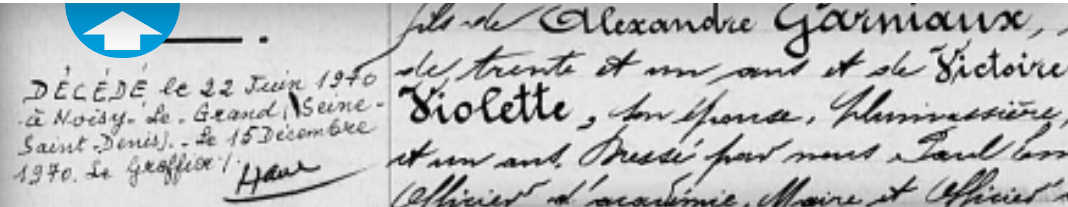 DÉCÉDÉ le 22 Juin 1970
à Noisy-Le-Grand (Seine-
Saint-Denis). - Le 15 Décembre
1970. Le Greffier:
fils de Alexandre Garniaux,
de trente et un ans et de Victoire
Violette, son épouse, plumassière,
et un ans. Dressé par nous Paul
Officier d'académie, Maire et Officier